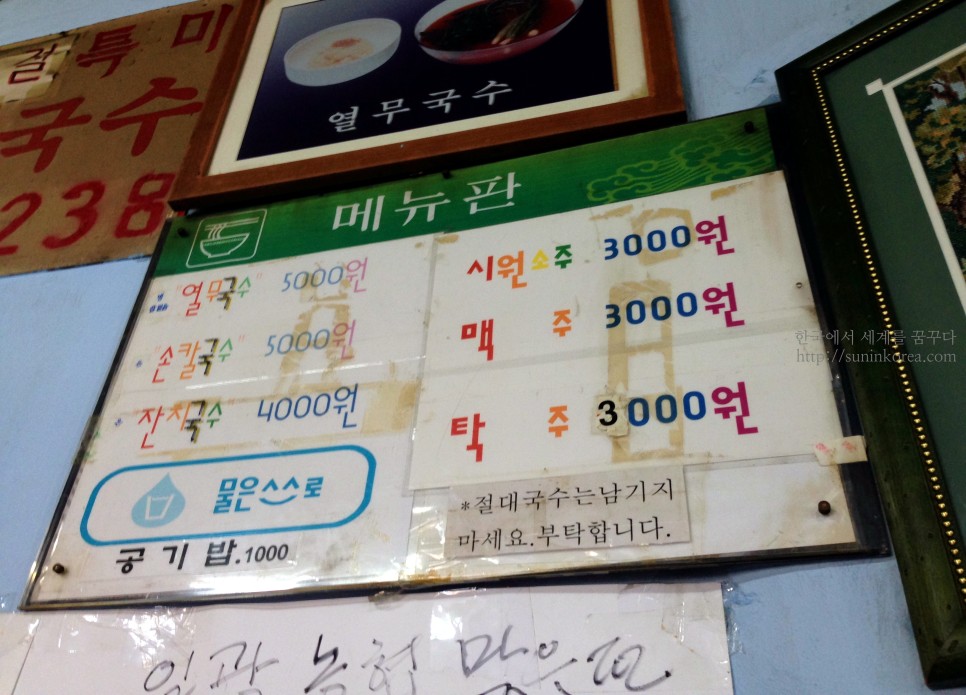 절특미
국수
238
열무국수
메뉴판
"열무국수" 5000원
"손칼국수" 5000원
잔치국수 4000원
물은 스스로
공기밥.1000
시원소주 3000원
맥주 3000원
탁주 3000원
*절대국수는남기지
마세요.부탁합니다.
한국에서 세계를 꿈꾸다
http://suninkorea.com
일광